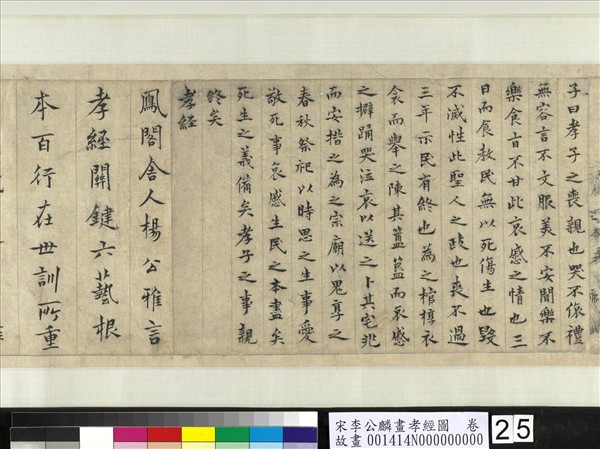 子曰孝子之喪親也哭不偯禮
無容言不文服美不安聞樂不
樂食旨不甘此哀慼之情也三
日而食教民無以死傷生也毀
不滅性此聖人之政也喪不過
三年示民有終也為之棺椁衣
衾而舉之陳其簠簋而哀慼
之擗踊哭泣哀以送之卜其宅兆
而安措之為之宗廟以鬼享之
春秋祭祀以時思之生事愛
敬死事哀慼生民之本盡矣
死生之義備矣孝子之事親
終矣
孝經
鳳閣舍人楊公雅言
孝經關鍵六藝根
本百行在世訓所重
宋李公麟畫孝經圖 卷
故畫 001414N000000000
25